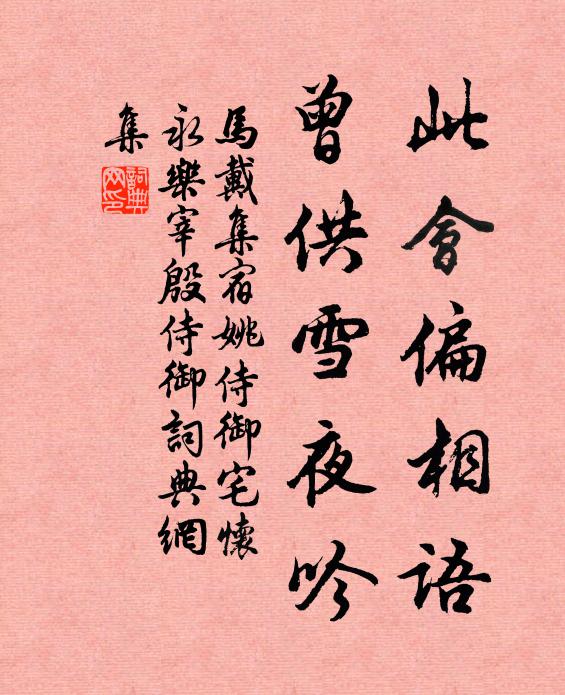 此會偏相語
曾供雪夜吟
馬戴集宿姚侍御宅懷
永樂宰殷侍御詞典網
集
詞典
网印